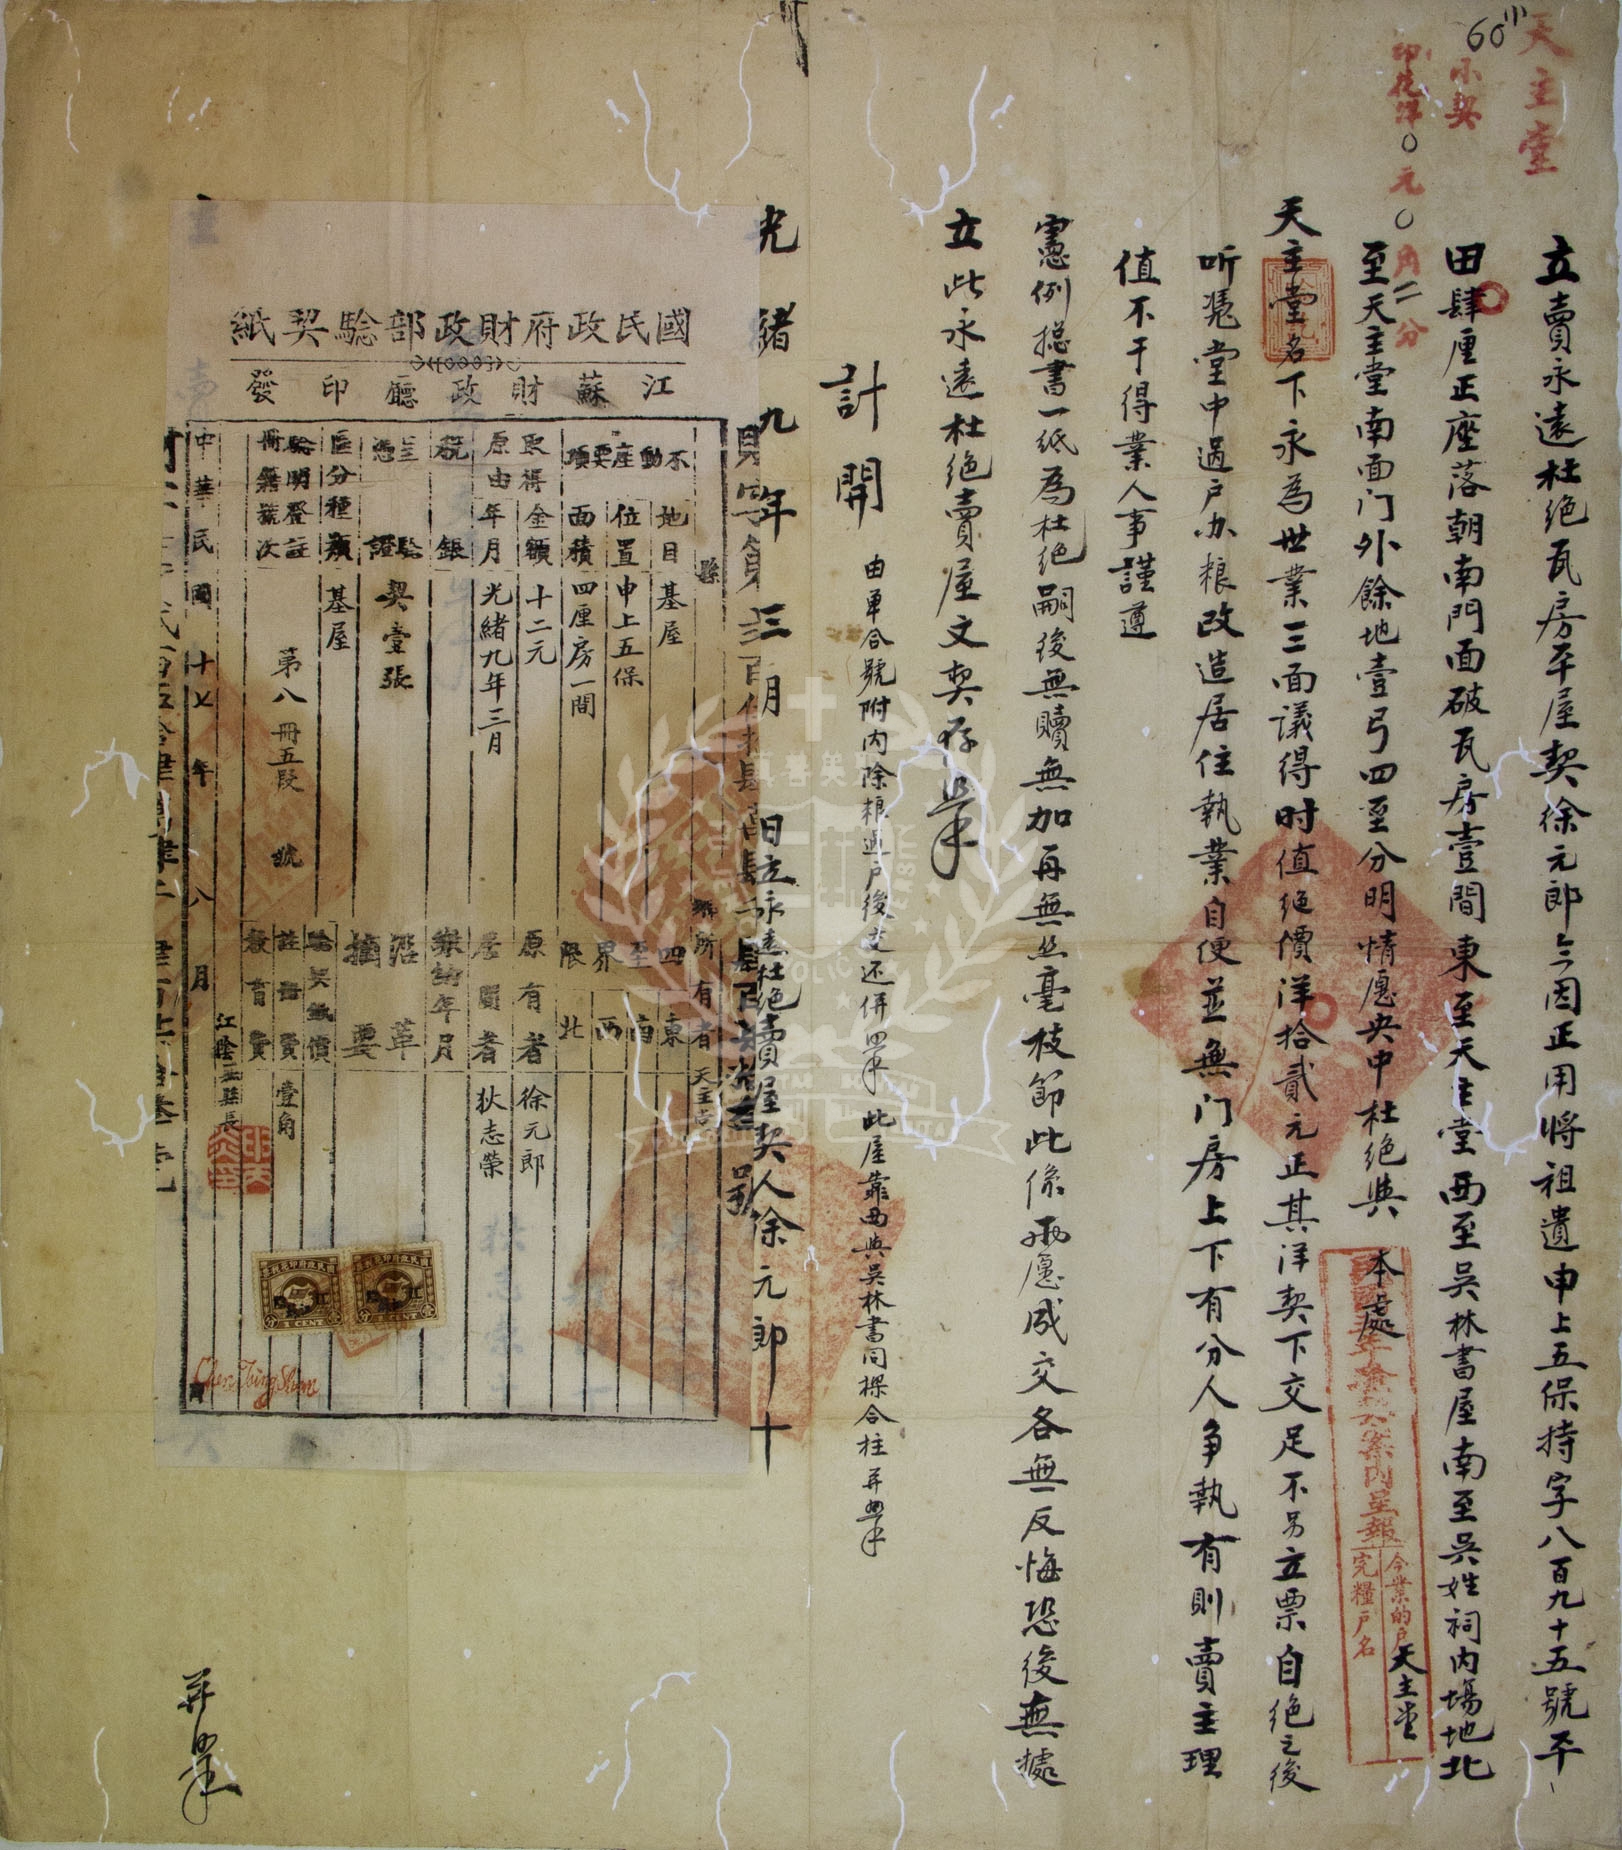 天主堂
小契
印花洋〇元〇角二分
60
立賣永遠杜絕瓦房平屋契徐元郎今因正用將祖遺申上五保持字八百九十五號平
田肆厘正座落朝南門面破瓦房壹間東至天主堂西至吳林書屋南至吳姓祠內場地北
至天主堂南面门外餘地壹弓四至分明情愿央中杜絕與
本處
天主堂名下永為世業三面議得时值绝價洋拾貳元正其洋契下交足不另立票自绝之後
听凭堂中過户办粮改造居住執業自便並無门房上下有分人争執有則賣主理
值不干得業人事謹遵
憲例摠書一纸為杜绝嗣後無贖無加再無丝毫枝節此係兩愿成交各無反悔恐後無據
立此永遠杜绝賣屋文契存
計開
由單合號附內除粮過户後
此屋靠西與吳林書同樑合柱并
光緒九年三月 日立永遠杜绝賣屋契人徐元郎十
案內呈報
今業的户天主堂
完糧户名
國民政府財政部驗契紙
江蘇財政廳印發
縣
所有者 天主堂
不動產要項
地目 基屋
位置 申上五保
面積 四厘房一間
四至界限
東
南
西
北
取得原由
金額 十二元
年月 光緒九年三月
原有者 徐元郎
居間者 狄志榮
稅銀
年月
呈驗憑證 契壹張
沿革摘要
區分種類 基屋
驗契紙價
驗明登註冊籍號次 第八冊五段 號
註冊費 壹角
教育費
中華民國十七年八月
江陰縣長
1 CENT
1 CENT
Chen Tsing Shun